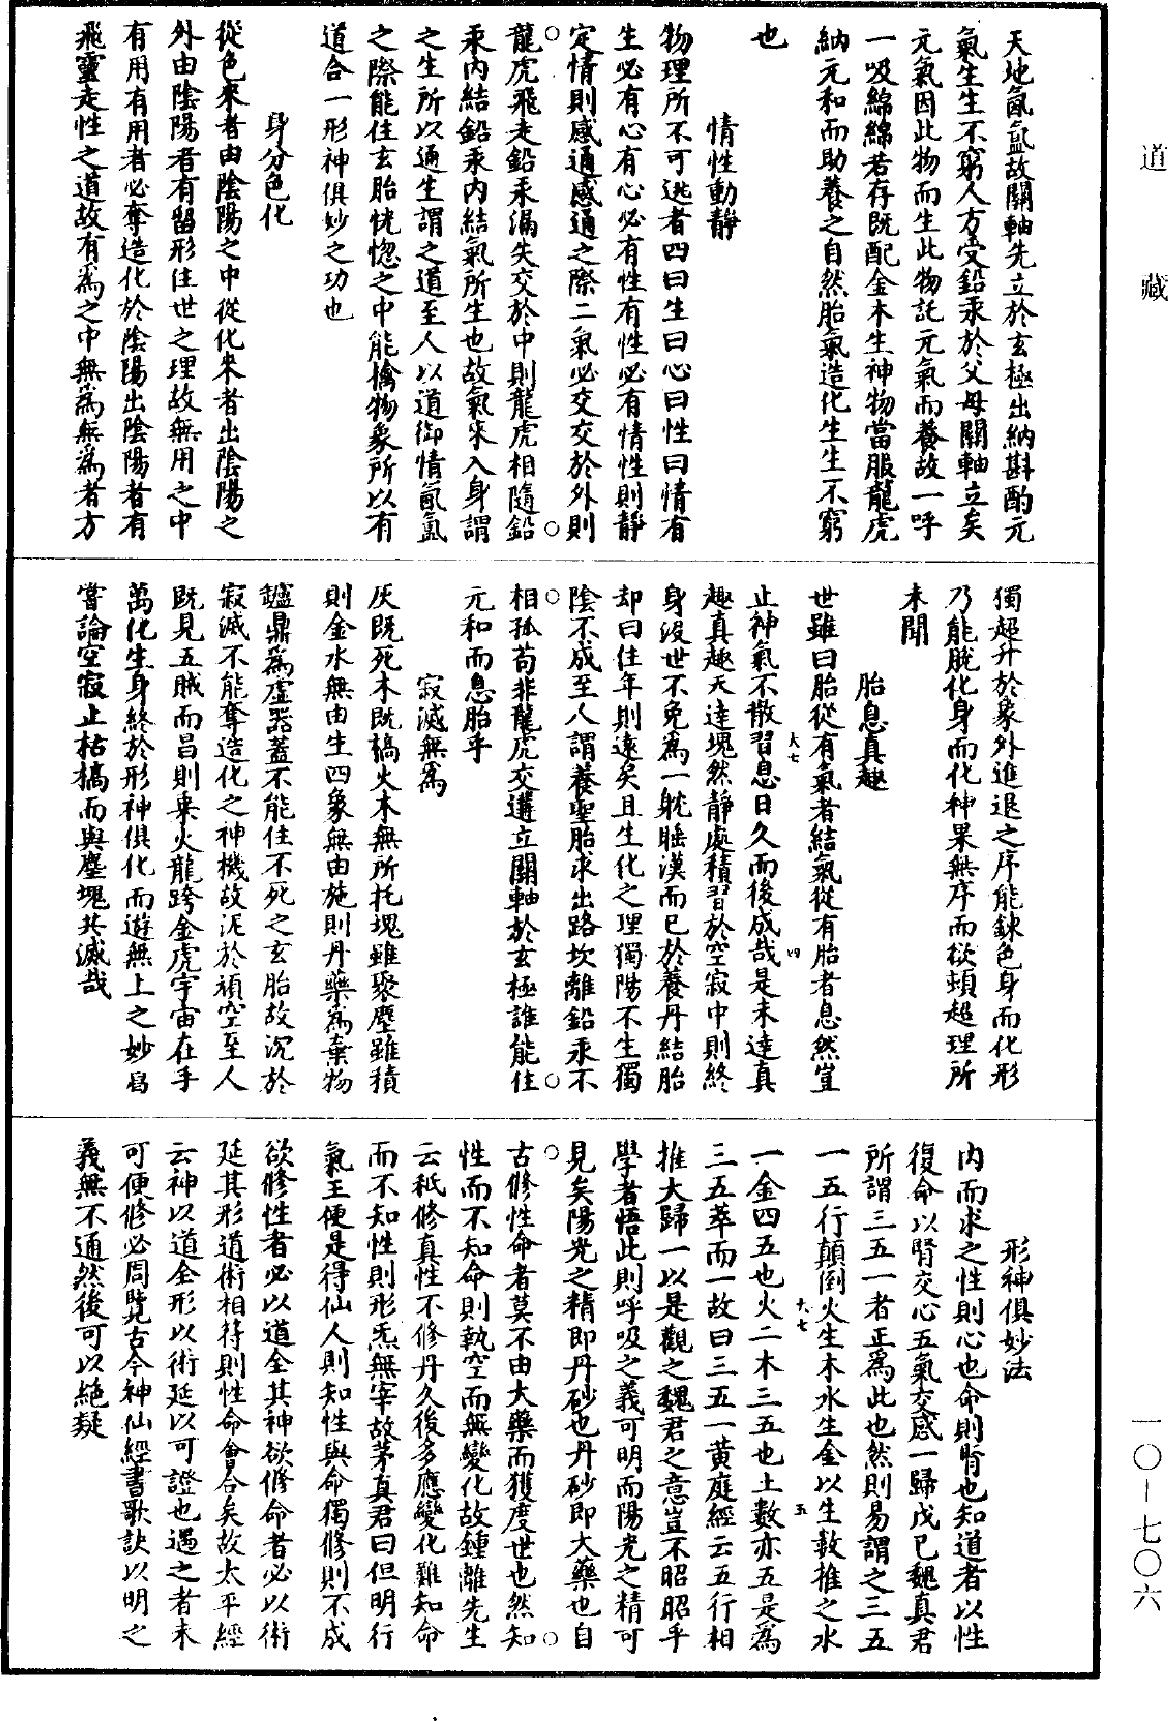 道藏
天地氤氳故關軸先立於玄極出納斟酌元
氣生生不窮人方受鉛汞於父母關軸立矣
元氣因此物而生此物託元氣而養故一呼
一吸綿綿若存既配金木生神物當服龍虎
納元和而助養之自然胎氣造化生生不窮
也
情性動靜
物理所不可逃者四曰生曰心曰性曰情有
生必有心有心必有性有性必有情性則靜
定情則感通感通之際二氣必交交於外則
龍虎飛走鉛汞漏失交於中則龍虎相隨鉛
汞內結鉛汞內結氣所生也故氣來入身謂
之生所以通生謂之道至人以道御情氤氳
之際能住玄胎恍惚之中能擒物象所以有
道合一形神俱妙之功也
身分色化
從色來者由陰陽之中從化來者出陰陽之
外由陰陽者有留形住世之理故無用之中
有用有用者必奪造化於陰陽出陰陽者有
飛靈走性之道故有為之中無為無為者方
獨超升於象外進退之序能鍊色身而化形
乃能脫化身而化神果無序而欲頓超理所
未聞
胎息真趣
世雖曰胎從有氣者結氣從有胎者息然豈
止神氣不散習息日久而後成哉是未達真
趣真趣天達塊然靜處積習於空寂中則終
身沒世不免為一躭睡漢而已於養丹結胎
却曰住年則遠矣且生化之理獨陽不生獨
陰不成至人謂養聖胎求出路坎離鉛汞不
相孤苟非龍虎交遘立關軸於玄極誰能住
元和而息胎乎
寂滅無為
灰既死木既槁火木無所托塊雖聚塵雖積
則金水無由生四象無由施則丹藥為棄物
鑪鼎為虛器蓋不能住不死之玄胎故沉於
寂滅不能奪造化之神機故泥於頑空至人
既見五賊而昌則乘火龍跨金虎宇宙在手
萬化生身終於形神俱化而遊無上之妙烏
嘗論空寂止枯槁而與塵塊共滅哉
形神俱妙法
內而求之性則心也命則腎也知道者以性
復命以腎交心五氣交感一歸戊己魏真君
所謂三五一者正為此也然則易謂之三五
一五行顛倒火生木水生金以生數推之水
一金四五也火二木三五也土數亦五是為
三五萃而一故曰三五一黃庭經云五行相
推大歸一以是觀之魏君之意豈不昭昭乎
學者悟此則呼吸之義可明而陽光之精可
見矣陽光之精即丹砂也丹砂即大藥也自
古修性命者莫不由大藥而獲度世也然知
性而不知命則執空而無變化故鍾離先生
云秖修真性不修丹久後多應變化難知命
而不知性則形炁無宰故茅真君曰但明行
氣王便是得仙人則知性與命獨修則不成
欲修性者必以道全其神欲修命者必以術
延其形道術相符則性命會合矣故太平經
云神以道全形以術延以可證也遇之者未
可便修必周覽古今神仙經書歌訣以明之
義無不通然後可以絕疑
大七 四
大七 五
一〇-七〇六